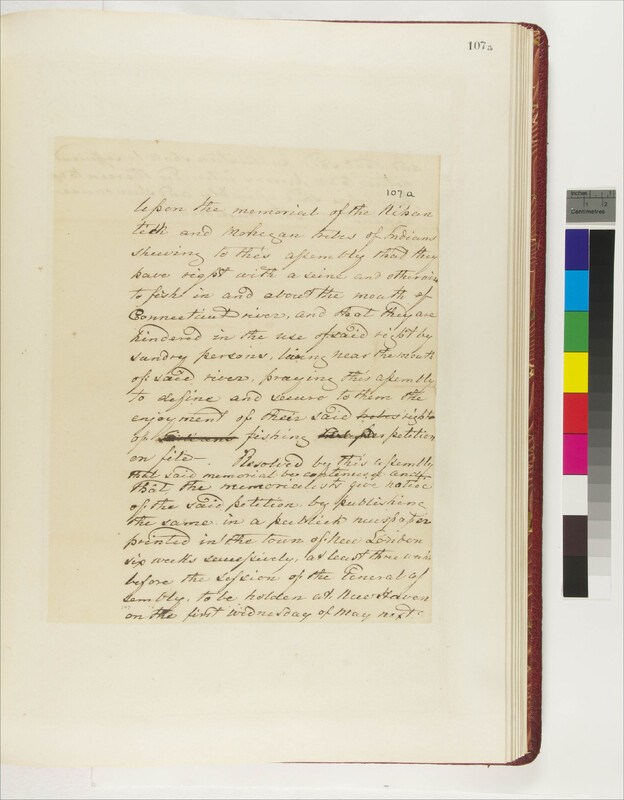 107a
107a
Upon the memorial of the Nihan
tick and Mohegan tribes of Indians
shewing to this assembly that they
have right with a seine and otherwise
to fish in and about the mouth of
Connecticut river, and that they are
hindered in the use of said right by
sundry persons, living near the mouth
of said river, praying this assembly
to define and secure to them the
enjoyment of their said rights
of fishing petition
on file — Resolved by this assembly
that said memorial be continued and
that the memorialists give notice
of the said petition by publishing
the same in a publick newspaper
printed in the town of New London
six weeks successively, at least three weeks
before the session of the General As
sembly, to be holden at New Haven
on the first Wednesday of May next.
inches 1
Centimetres